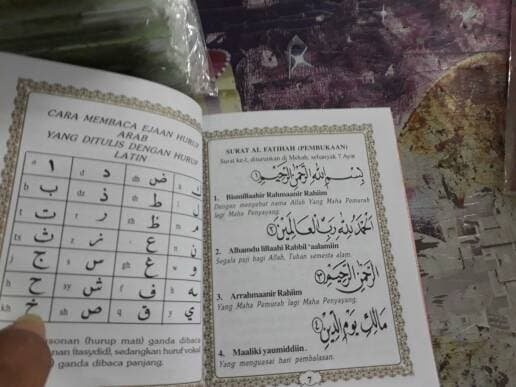 CARA MEMBACA EJAAN HURUF
ARAB
YANG DITULIS DENGAN HURUF
LATIN
a ا d د dh ض k ك
b ب dz ذ th ط l ل
t ت r ر zh ظ m م
ts ث z ز ' ع n ن
j ج s س gh غ w و
h ح sy ش f ف h ه
kh خ sh ص q ق y ي
(hurup mati) ganda dibaca
(tasydid), sedangkan huruf vokal
ganda dibaca panjang.
SURAT AL FATIHAH (PEMBUKAAN)
Surat ke-1, diturunkan di Mekah, sebanyak 7 Ayat
بِسْمِ اللهِ الرَّحْمٰنِ الرَّحِيْمِ ۝١
1. Bismillaahir Rahmaanir Rahiim
Dengan menyebut nama Allah Yang Maha Pemurah
lagi Maha Penyayang.
اَلْحَمْدُ لِلّٰهِ رَبِّ الْعَالَمِيْنَ ۝٢
2. Alhamdu lillaahi Rabbil 'aalamiin
Segala puji bagi Allah, Tuhan semesta alam.
الرَّحْمٰنِ الرَّحِيْمِ ۝٣
3. Arrahmaanir Rahiim
Yang Maha Pemurah lagi Maha Penyayang.
مَالِكِ يَوْمِ الدِّيْنِ ۝٤
4. Maaliki yaumiddiin.
Yang menguasai hari pembalasan.
7